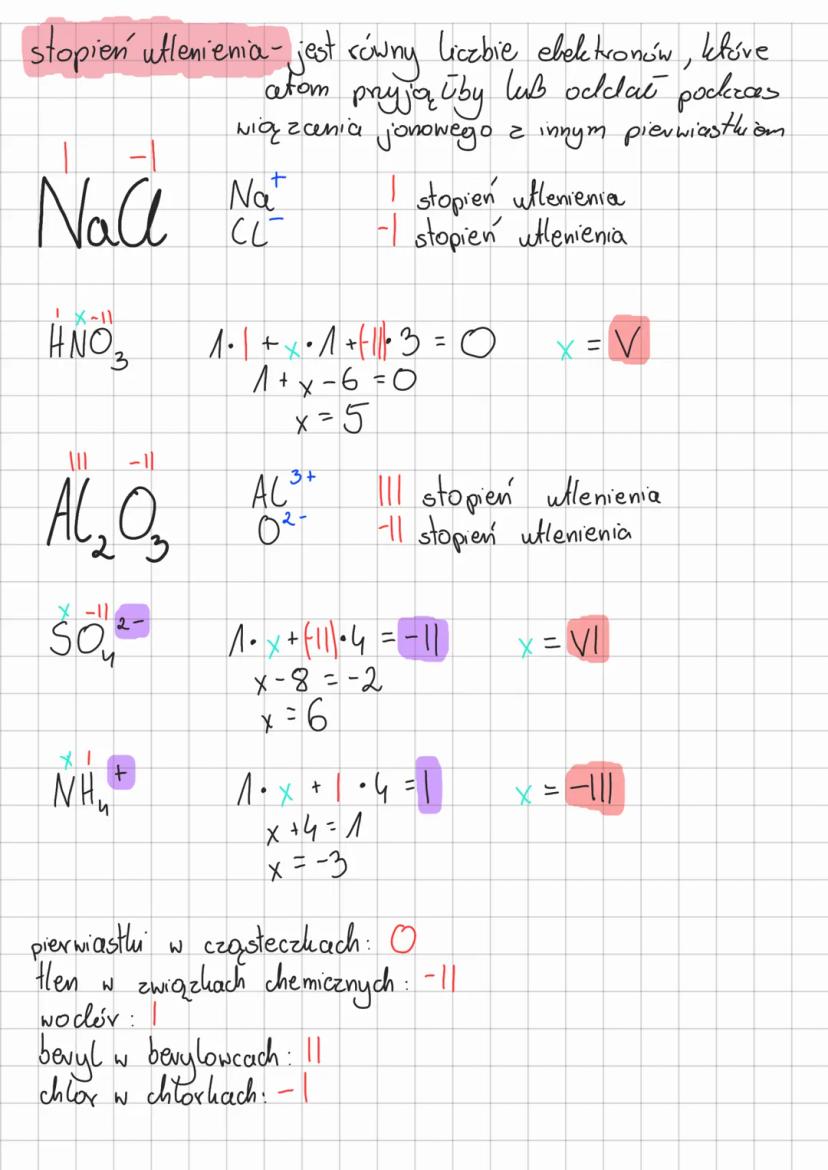 stopień utlenienia - jest równy liczbie elektronów, które
atom przyjąłby lub oddał podczas
wiązania jonowego z innym pierwiastkiem
I -I
NaCl Na⁺ I stopień utlenienia
Cl⁻ -I stopień utlenienia
I x -II
HNO₃ 1·I + x·1 + (-II)·3 = 0 x = V
1 + x - 6 = 0
x = 5
III -II
Al₂O₃ Al³⁺ III stopień utlenienia
O²⁻ -II stopień utlenienia
x -II
SO₄²⁻ 1·x + (-II)·4 = -II x = VI
x - 8 = -2
x = 6
x I
NH₄⁺ 1·x + I·4 = I x = -III
x + 4 = 1
x = -3
pierwiastki w cząsteczkach: 0
tlen w związkach chemicznych: -II
wodór: I
beryl w berylowcach: II
chlor w chlorkach: -I